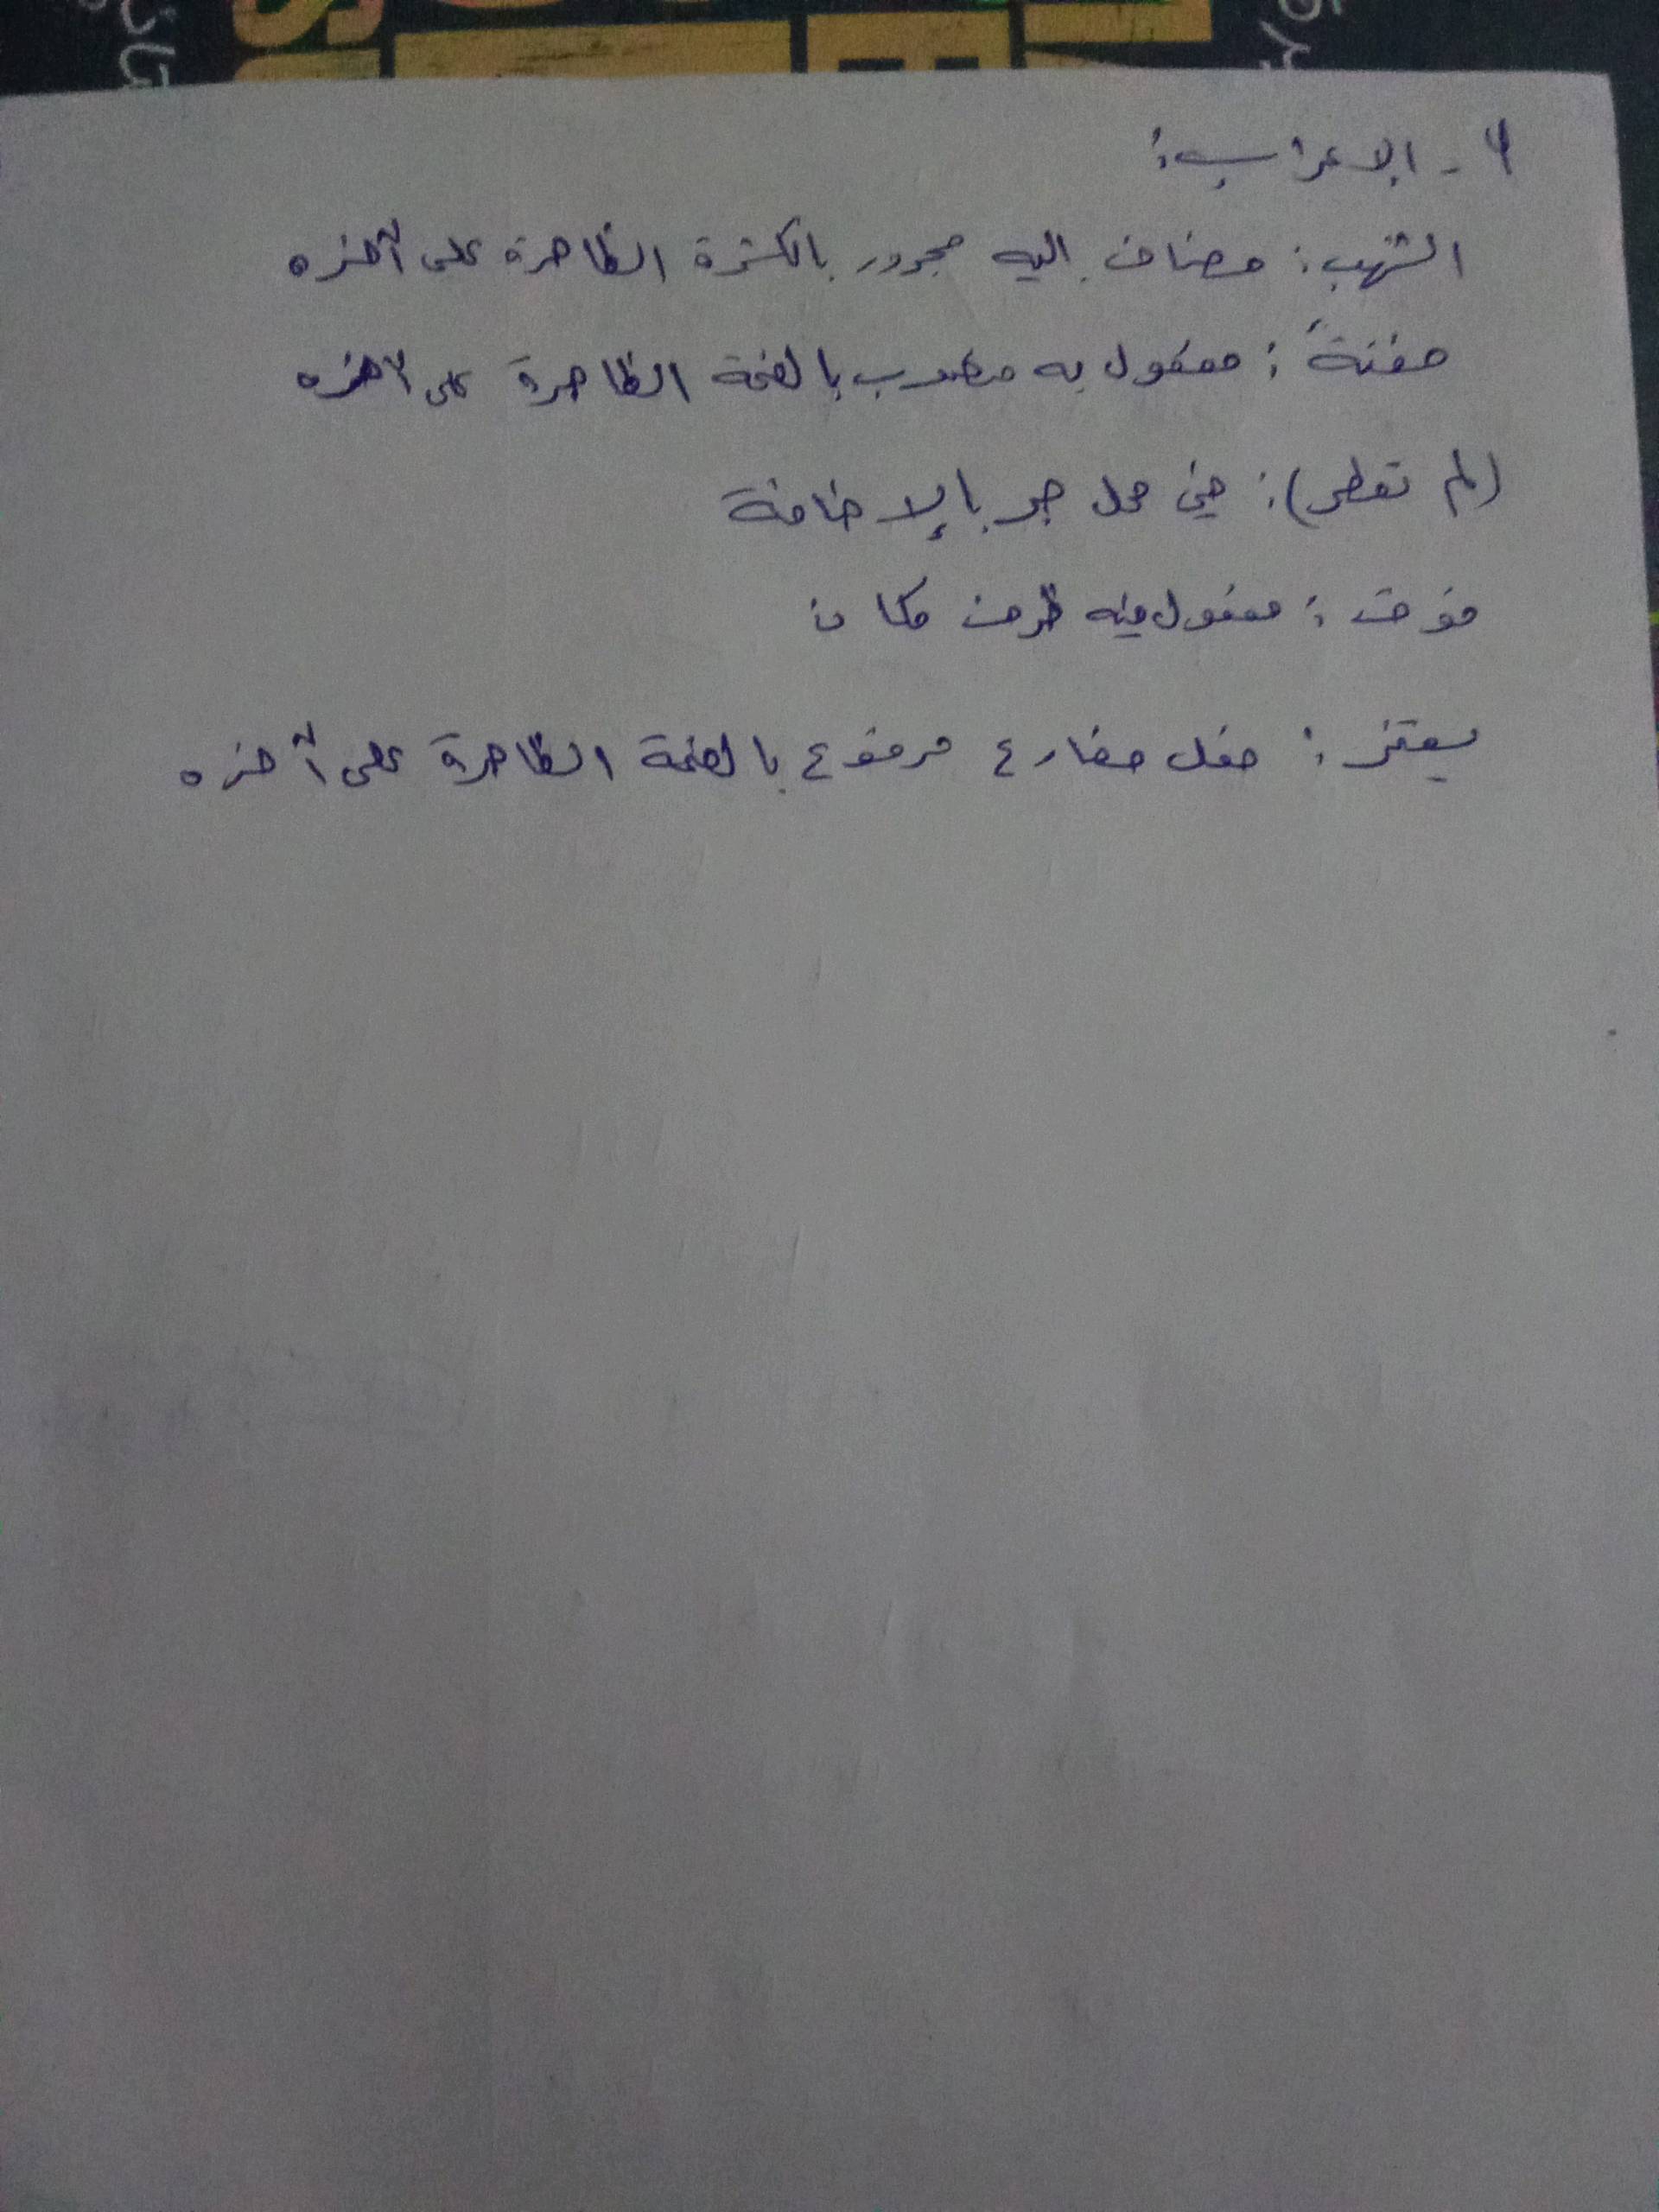 ٩ - الإعراب:
الشهب: مضاف إليه مجرور بالكسرة الظاهرة على آخره
حفنةً: مفعول به منصوب بالفتحة الظاهرة على آخره
(لم تعطر): في محل جر بالإضافة
فوق: مفعول فيه ظرف مكان
يعتز: فعل مضارع مرفوع بالضمة الظاهرة على آخره